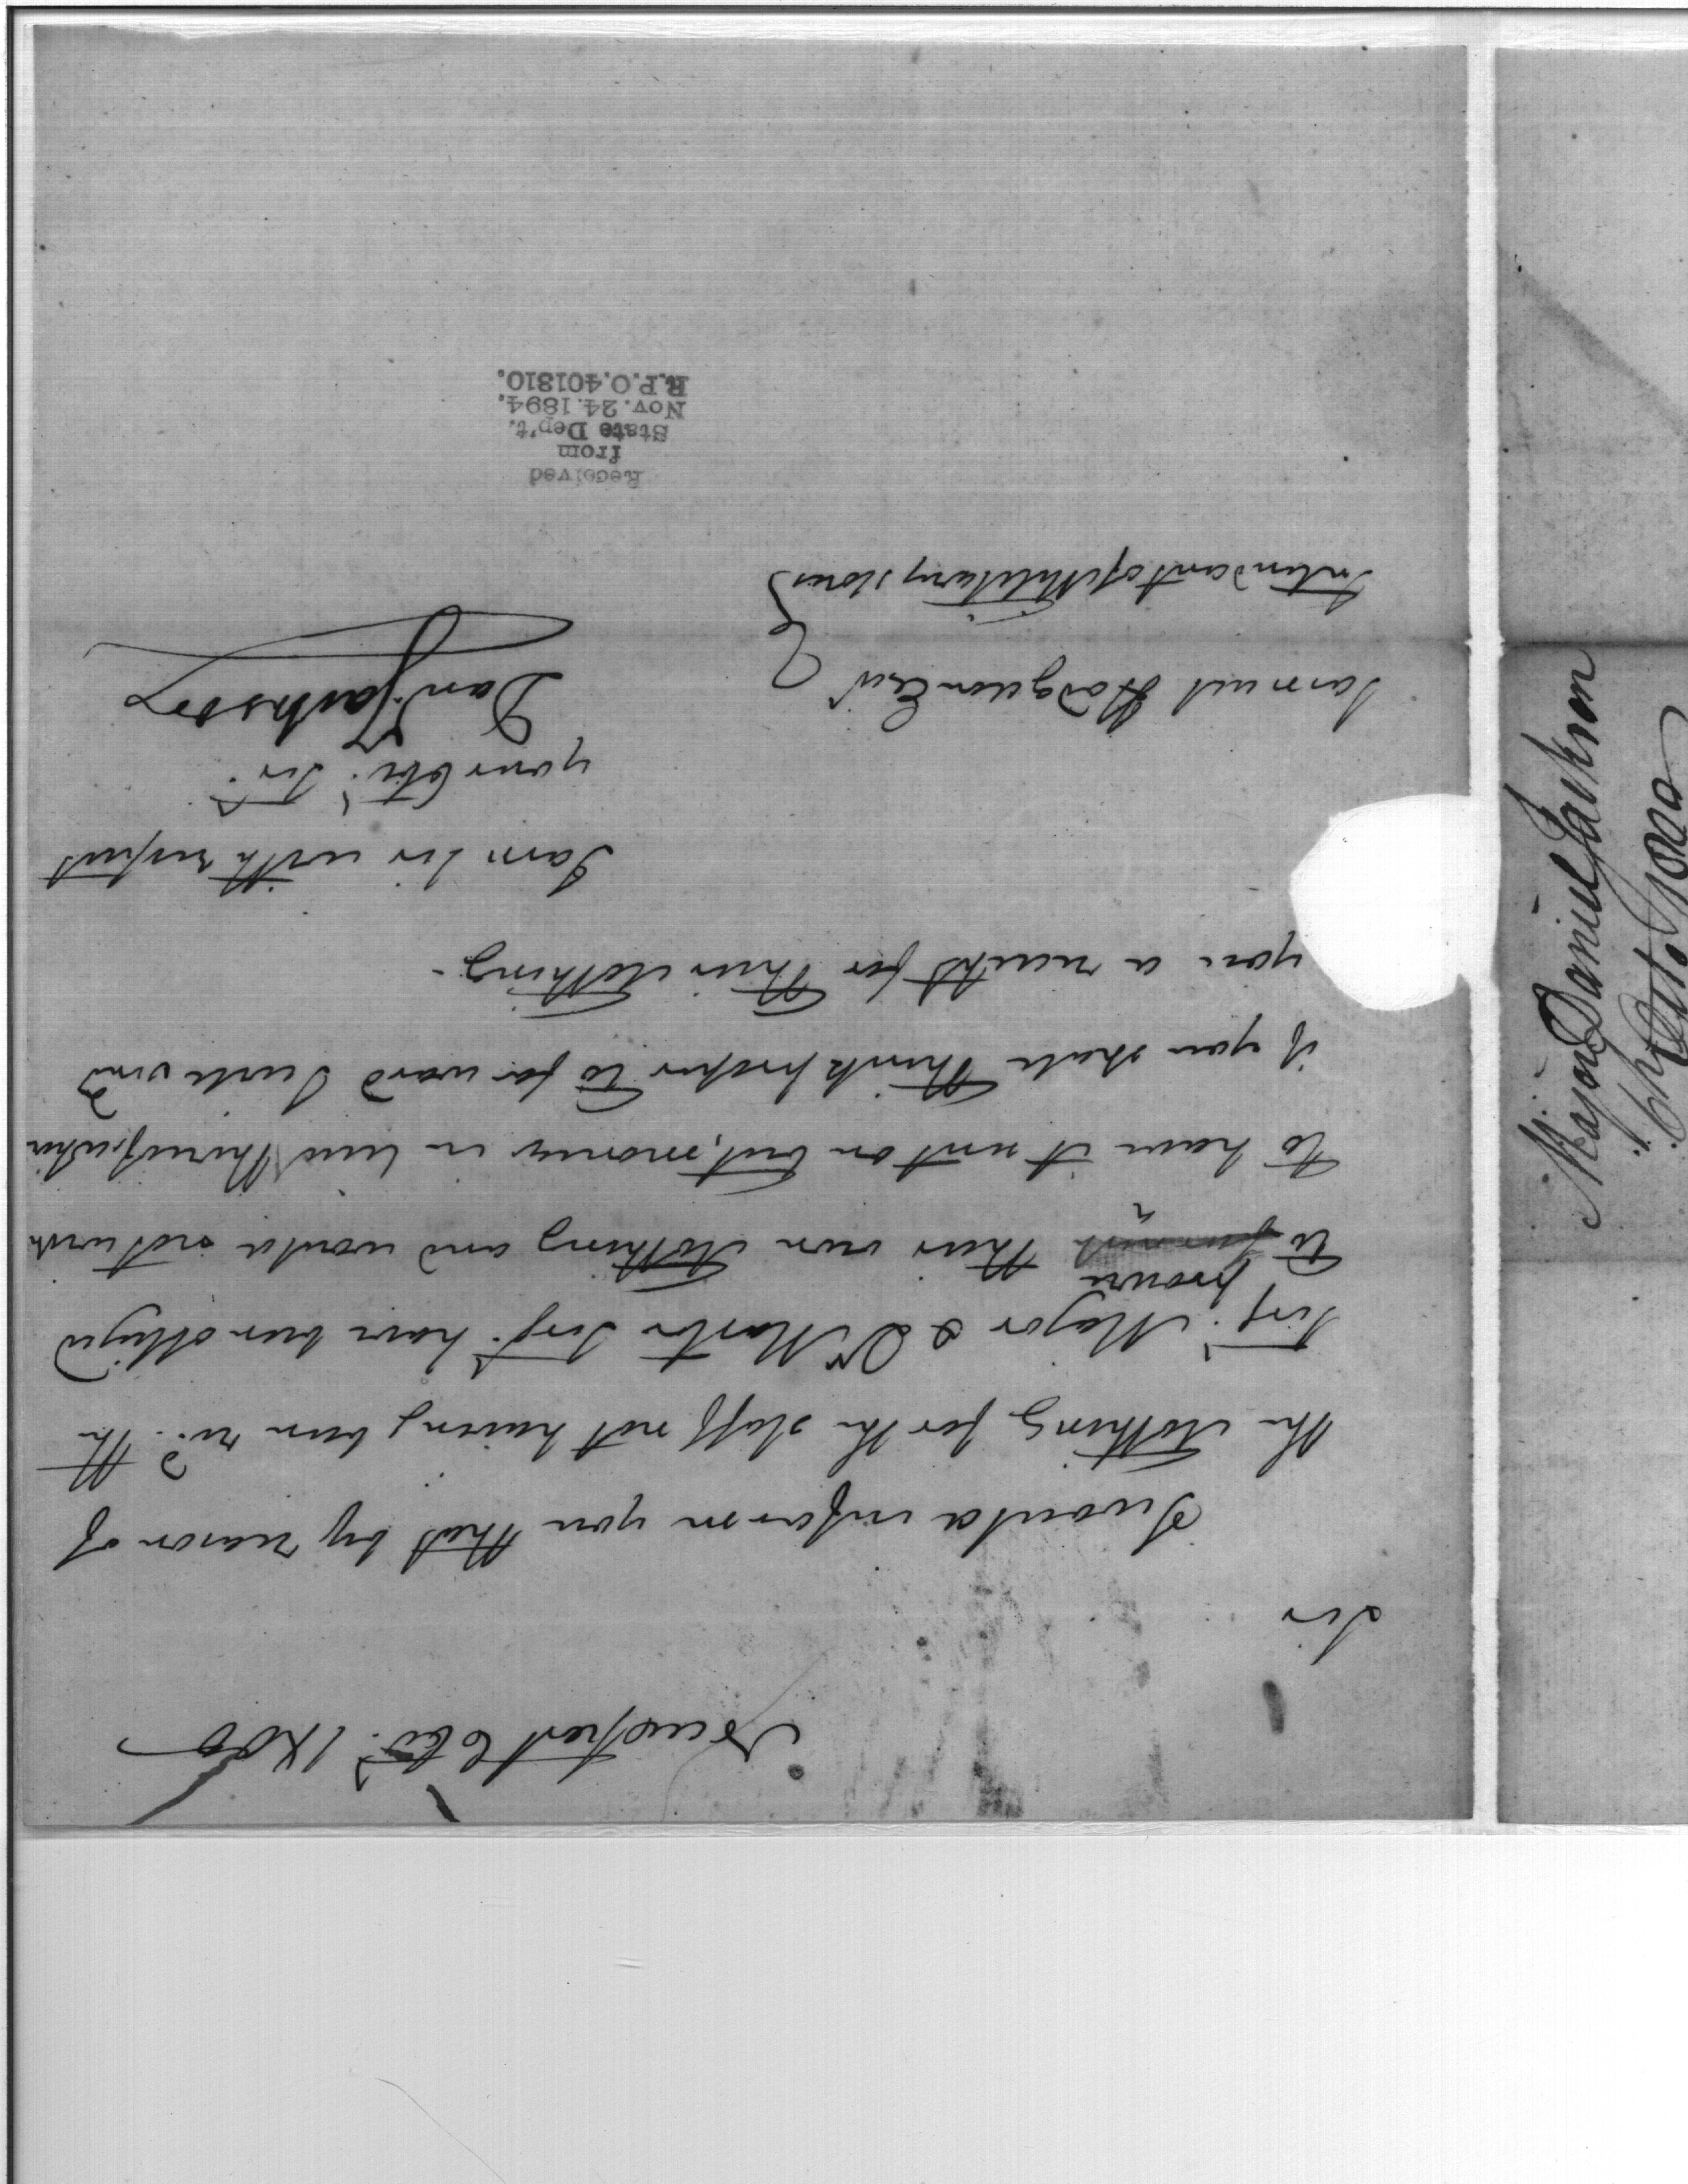 Newport 6 Octr. 1800
Sir
I would inform you that by reason of
the clothing for the staff not having been recd. the
Serjt. Major & Qr Master Serjt. have been obliged
procure
to furnish their own clothing and would not wish
to have it sent on but, money in lieu thereof, which
if you shall think proper to forward I will send
you a receipt for their clothing -
I am Sir with respect
your Obt. Ser.
Danl Jackson
Samuel Hodgdon Esqr
Intendant of Military stores
Received
from
State Dep't.
Nov. 24. 1894,
R.P.O. 401810.
Major Daniel Jackson
6 Octo. 1800